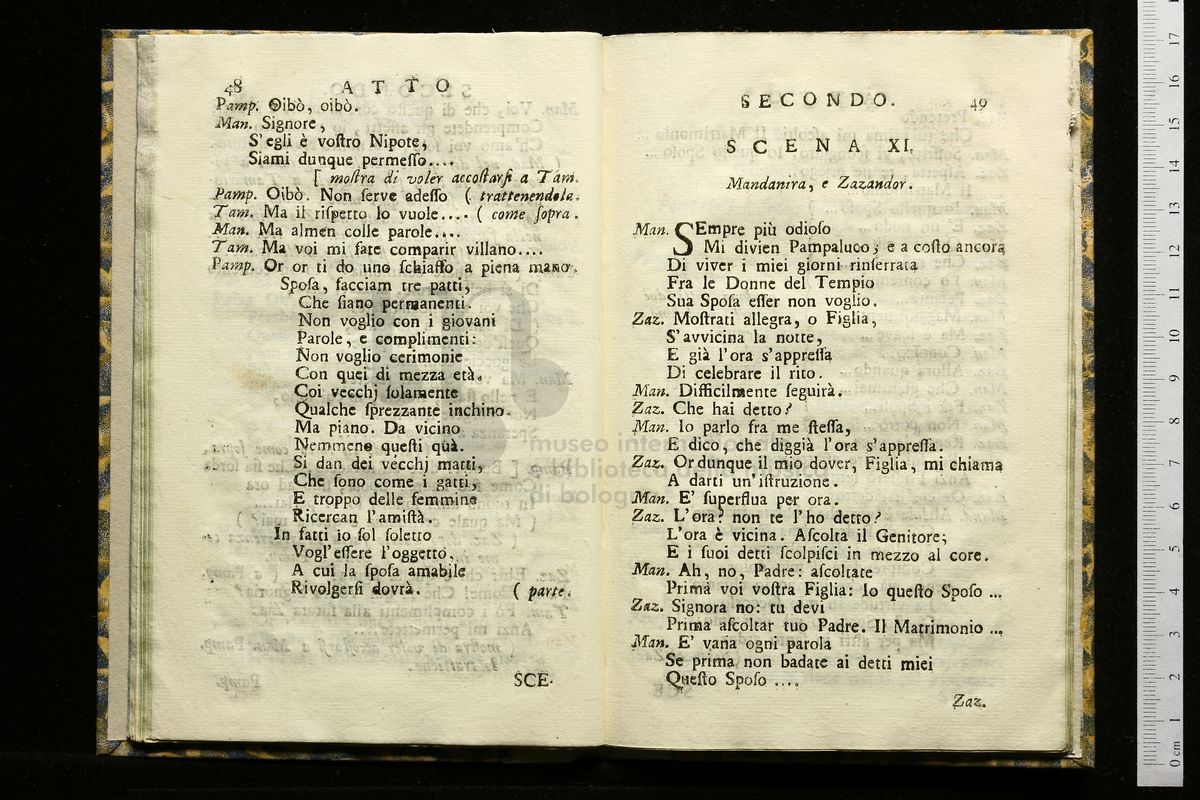 48 ATTO
Pamp. Oibò, oibò.
Man. Signore,
S'egli è voſtro Nipote,
Siami dunque permeſſo....
[ moſtra di voler accoſtarſi a Tam.
Pamp. Oibò. Non ſerve adeſſo ( trattenendola.
Tam. Ma il riſpetto lo vuole.... ( come ſopra.
Man. Ma almen colle parole....
Tam. Ma voi mi fate comparir villano....
Pamp. Or or ti do uno ſchiaffo a piena mano.
Spoſa, facciam tre patti,
Che ſiano permanenti.
Non voglio con i giovani
Parole, e complimenti:
Non voglio cerimonie
Con quei di mezza età.
Coi vecchj ſolamente
Qualche ſprezzante inchino.
Ma piano. Da vicino
Nemmeno queſti quà.
Si dan dei vecchj matti,
Che ſono come i gatti,
E troppo delle femmine
Ricercan l'amiſtà.
In fatti io ſol ſoletto
Vogl'eſſere l'oggetto,
A cui la ſpoſa amabile
Rivolgerſi dovrà. ( parte.
SCE-
SECONDO. 49
SCENA XI.
Mandanira, e Zazandor.
Man. SEmpre più odioſo
Mi divien Pampaluco; e a coſto ancora
Di viver i miei giorni rinſerrata
Fra le Donne del Tempio
Sua Spoſa eſſer non voglio.
Zaz. Moſtrati allegra, o Figlia,
S'avvicina la notte,
E già l'ora s'appreſſa
Di celebrare il rito.
Man. Difficilmente ſeguirà.
Zaz. Che hai detto?
Man. Io parlo fra me ſteſſa,
E dico, che diggià l'ora s'appreſſa.
Zaz. Or dunque il mio dover, Figlia, mi chiama
A darti un'iſtruzione.
Man. E' ſuperflua per ora.
Zaz. L'ora? non te l'ho detto?
L'ora è vicina. Aſcolta il Genitore;
E i ſuoi detti ſcolpiſci in mezzo al core.
Man. Ah, no, Padre: aſcoltate
Prima voi voſtra Figlia: Io queſto Spoſo ...
Zaz. Signora no: tu devi
Prima aſcoltar tuo Padre. Il Matrimonio ...
Man. E' vana ogni parola
Se prima non badate ai detti miei
Queſto Spoſo ....
Zaz.